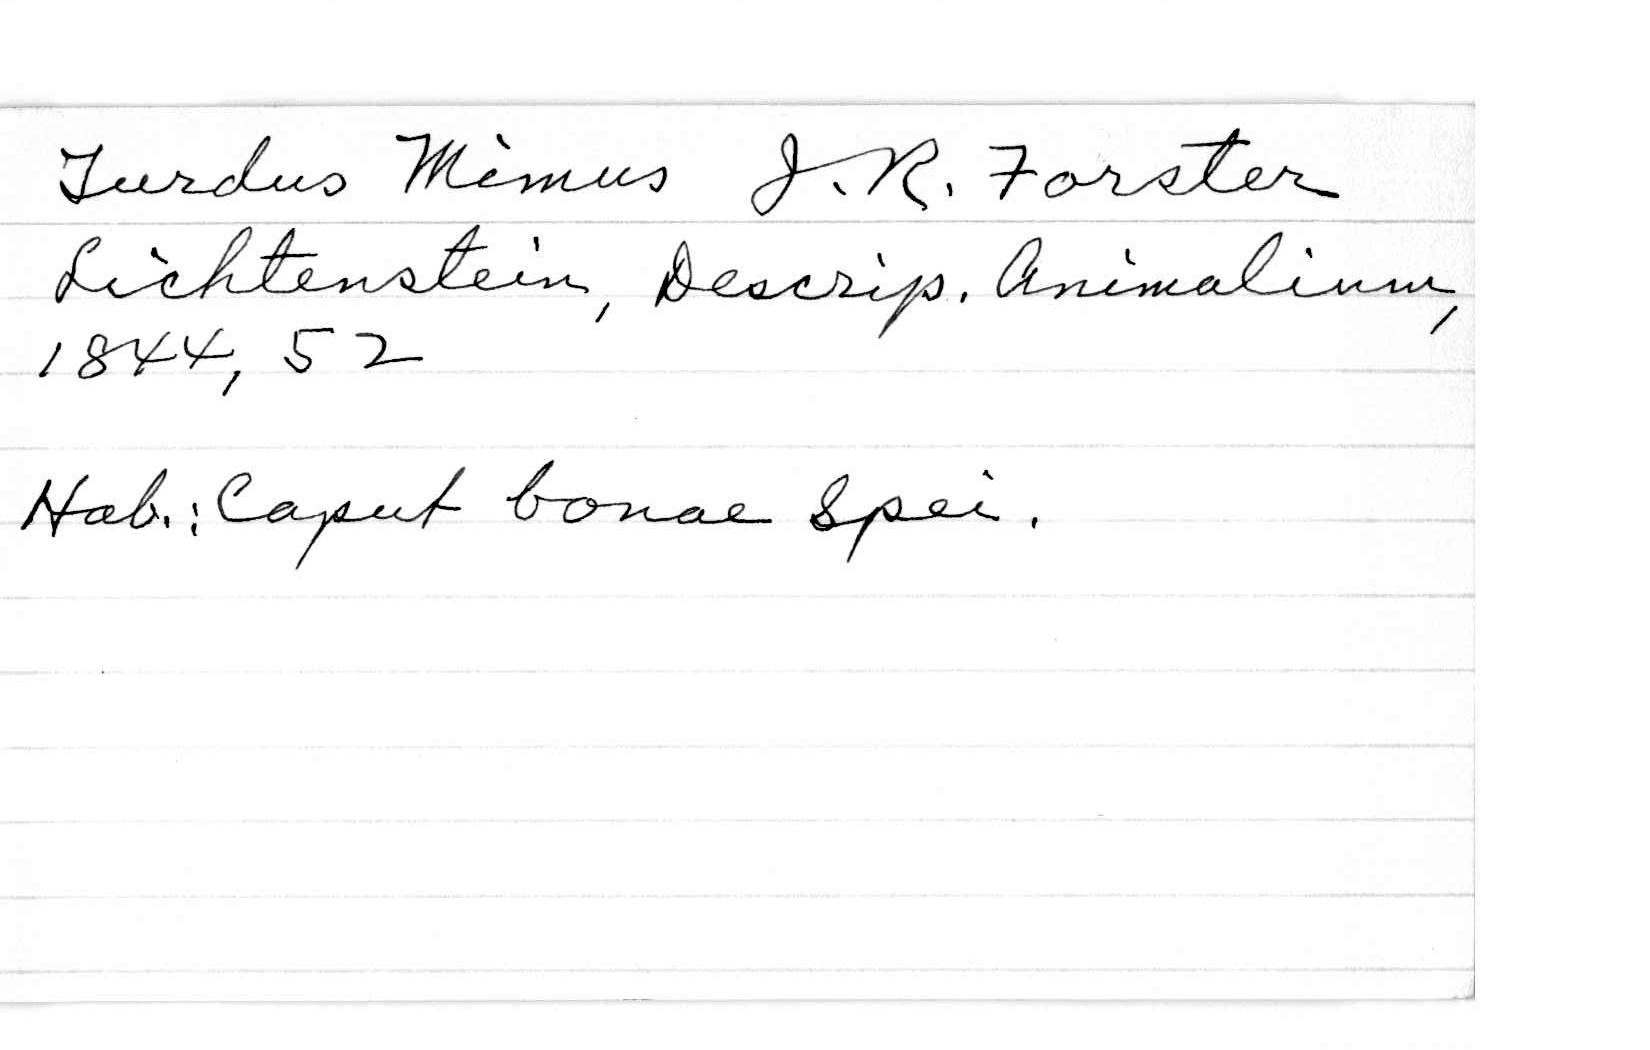 Turdus Mimus J. R. Forster
Lichtenstein, Descrip. Animalium,
1844, 52
Hab.: Caput bonae Spei.